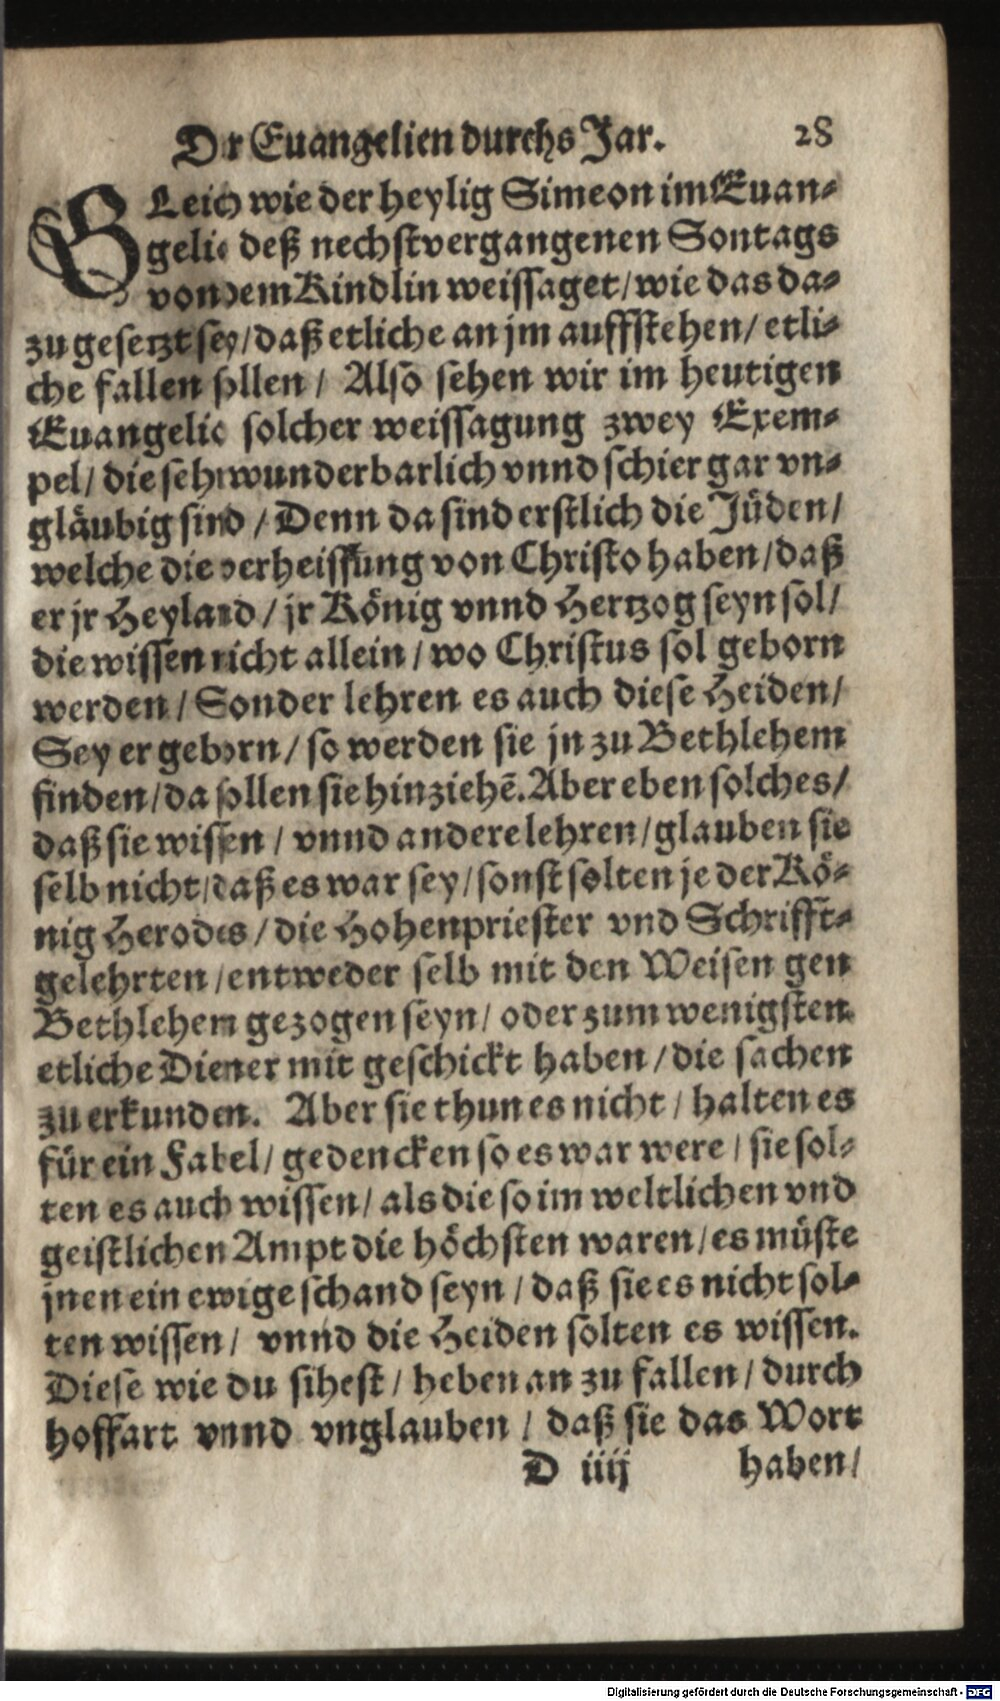 Der Euangelien durchs Jar. 28
GLeich wie der heylig Simeon im Euan-
gelio deß nechstvergangenen Sontags
von dem Kindlin weissaget/ wie das da-
zu gesetzt sey/ daß etliche an jm auffstehen/ etli-
che fallen sollen/ Also sehen wir im heutigen
Euangelio solcher weissagung zwey Exem-
pel/ die sehr wunderbarlich vnnd schier gar vn-
gläubig sind/ Denn da sind erstlich die Jüden/
welche die verheissung von Christo haben/ daß
er jr Heyland/ jr König vnnd Hertzog seyn sol/
die wissen nicht allein/ wo Christus sol geborn
werden/ Sonder lehren es auch diese Heiden/
Sey er geborn/ so werden sie jn zu Bethlehem
finden/ da sollen sie hinziehē. Aber eben solches/
daß sie wissen/ vnnd andere lehren/ glauben sie
selb nicht/ daß es war sey/ sonst solten je der Kö-
nig Herodes/ die Hohenpriester vnd Schrifft-
gelehrten/ entweder selb mit den Weisen gen
Bethlehem gezogen seyn/ oder zum wenigsten
etliche Diener mit geschickt haben/ die sachen
zu erkunden. Aber sie thun es nicht/ halten es
für ein Fabel/ gedencken so es war were/ sie sol-
ten es auch wissen/ als die so im weltlichen vnd
geistlichen Ampt die höchsten waren/ es müste
jnen ein ewige schand seyn/ daß sie es nicht sol-
ten wissen/ vnnd die Heiden solten es wissen.
Diese wie du sihest/ heben an zu fallen/ durch
hoffart vnnd vnglauben/ daß sie das Wort
D iiij haben/
Digitalisierung gefördert durch die Deutsche Forschungsgemeinschaft - DFG